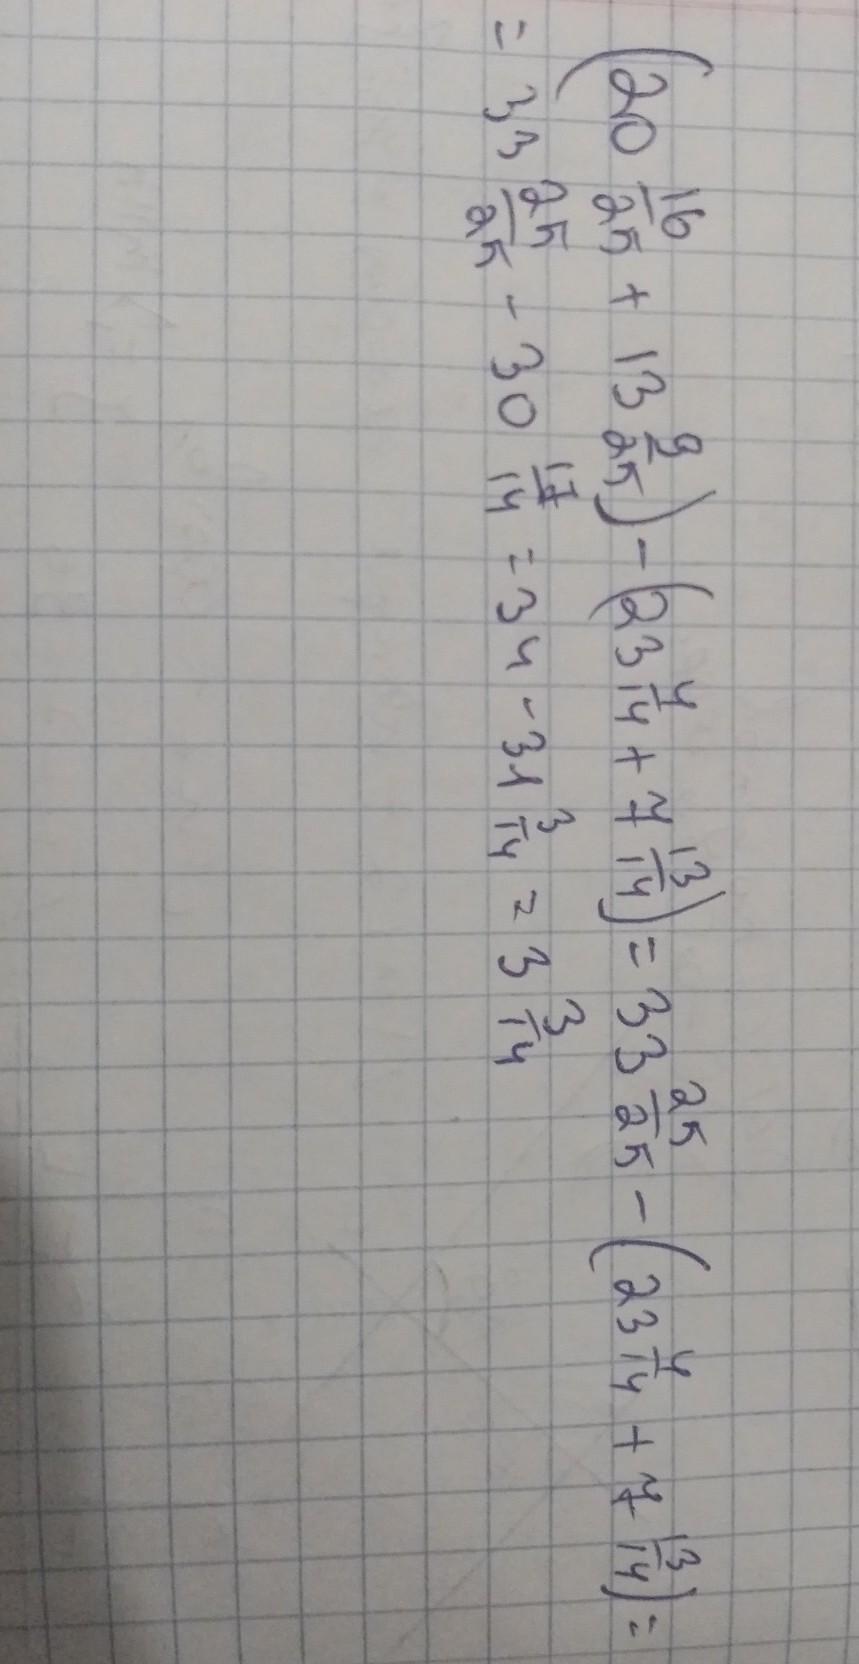 (20 16/25 + 13 9/25) - (23 4/14 + 7 13/14) = 33 25/25 - (23 4/14 + 7 13/14) =
= 33 25/25 - 30 17/14 = 34 - 31 3/14 = 3 3/14